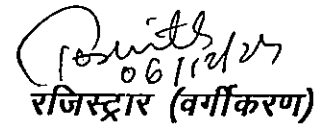 06/12/24
रजिस्ट्रार (वर्गीकरण)